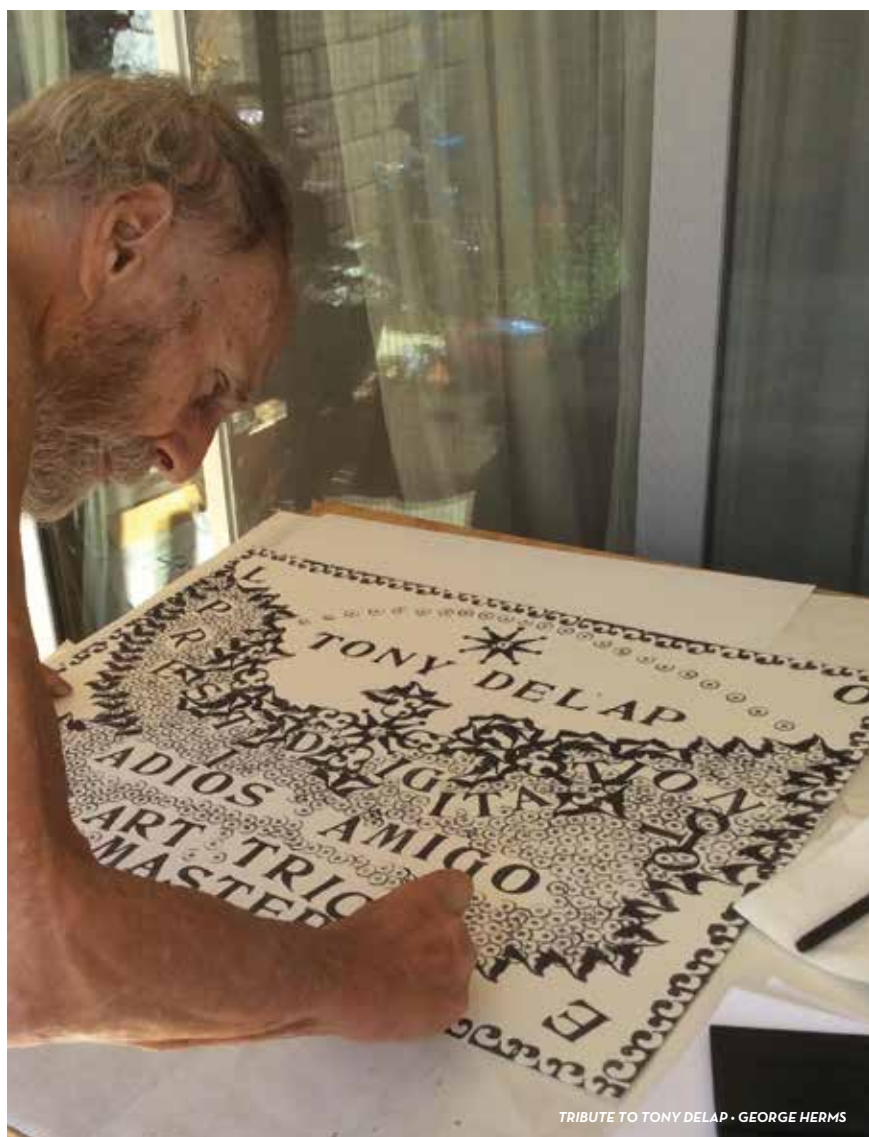 L
O
TONY DELAP
PRESTIDIGITATION
ADIOS
AMIGO
ART TRIC
MASTER
E
TRIBUTE TO TONY DELAP · GEORGE HERMS